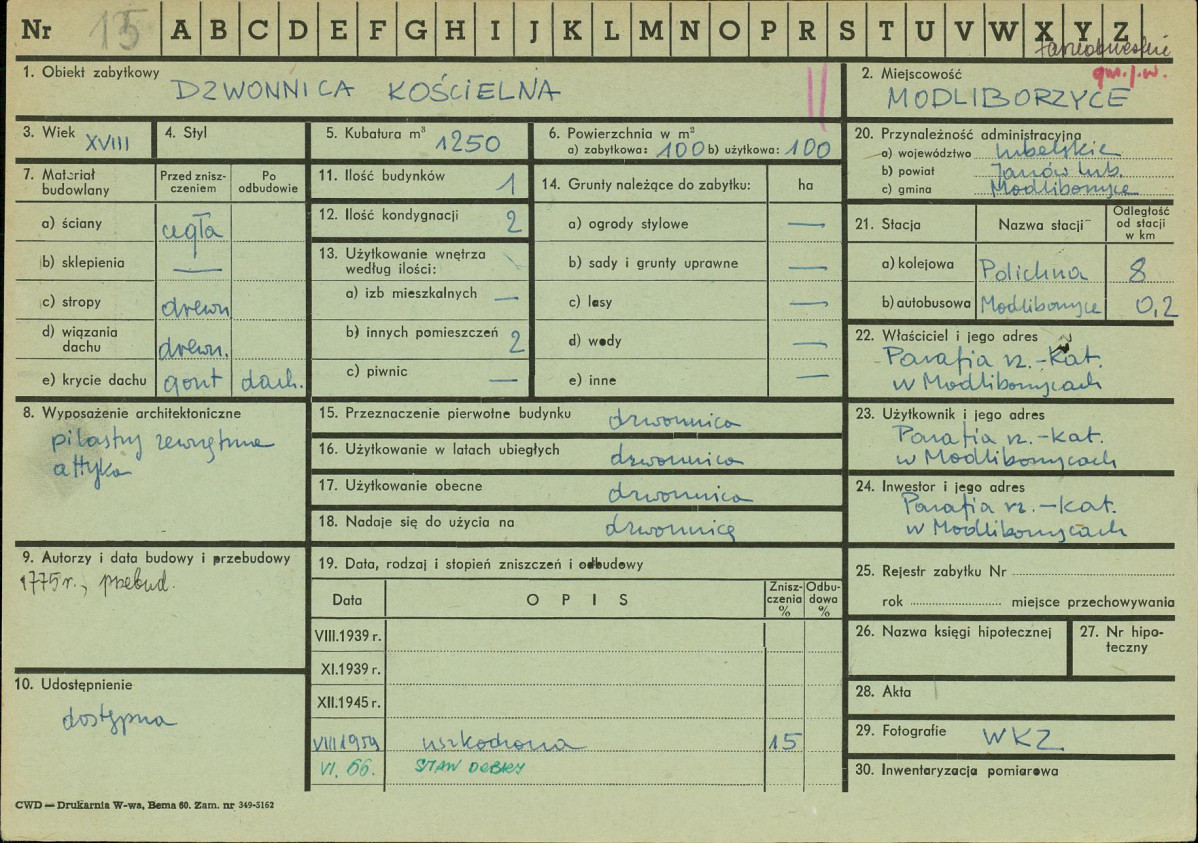 Nr 15 A B C D E F G H I J K L M N O P R S T U V W X Y Z
gm. j. w.
1. Obiekt zabytkowy
DZWONNICA KOŚCIELNA
2. Miejscowość
MODLIBORZYCE
3. Wiek XVIII
4. Styl
5. Kubatura m³ 1250
6. Powierzchnia w m²
a) zabytkowa: 100 b) użytkowa: 100
7. Materiał budowlany
Przed znisz-
czeniem
Po
odbudowie
a) ściany cegła
b) sklepienia —
c) stropy drewn
d) wiązania
dachu drewn.
e) krycie dachu gont dach.
8. Wyposażenie architektoniczne
pilastry zewnętrzne
attyka
9. Autorzy i data budowy i przebudowy
1775 r., przebud.
10. Udostępnienie
dostępna
11. Ilość budynków 1
12. Ilość kondygnacji 2
13. Użytkowanie wnętrza
według ilości:
a) izb mieszkalnych —
b) innych pomieszczeń 2
c) piwnic —
14. Grunty należące do zabytku: ha
a) ogrody stylowe —
b) sady i grunty uprawne —
c) lasy —
d) wody —
e) inne —
15. Przeznaczenie pierwotne budynku dzwonnica
16. Użytkowanie w latach ubiegłych dzwonnica
17. Użytkowanie obecne dzwonnica
18. Nadaje się do użycia na dzwonnicę
19. Data, rodzaj i stopień zniszczeń i odbudowy
Data
O P I S
Znisz-
czenia
%
Odbu-
dowa
%
VIII.1939 r.
XI.1939 r.
XII.1945 r.
VIII 1959 uszkodzona 15
VI. 66. STAN DOBRY
20. Przynależność administracyjna
a) województwo lubelskie
b) powiat Janów lub.
c) gmina Modliborzyce
21. Stacja
Nazwa stacji
Odległość
od stacji
w km
a) kolejowa Polichna 8
b) autobusowa Modliborzyce 0,2
22. Właściciel i jego adres
Parafia rz.-kat.
w Modliborzycach
23. Użytkownik i jego adres
Parafia rz.-kat.
w Modliborzycach
24. Inwestor i jego adres
Parafia rz.-kat.
w Modliborzycach
25. Rejestr zabytku Nr
rok miejsce przechowywania
26. Nazwa księgi hipotecznej
27. Nr hipo-
teczny
28. Akta
29. Fotografie WKZ
30. Inwentaryzacja pomiarowa
CWD — Drukarnia W-wa, Bema 60. Zam. nr 349-5162